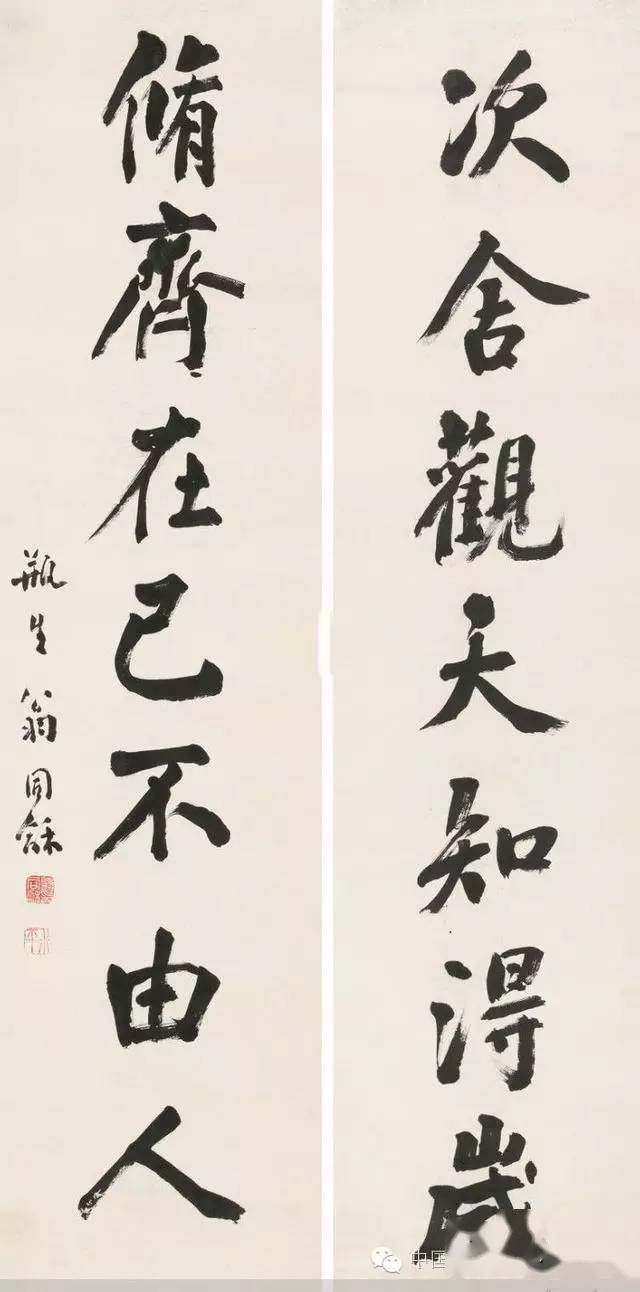 次舍觀天知得歲
脩齊在己不由人
瓶生翁同龢
中国